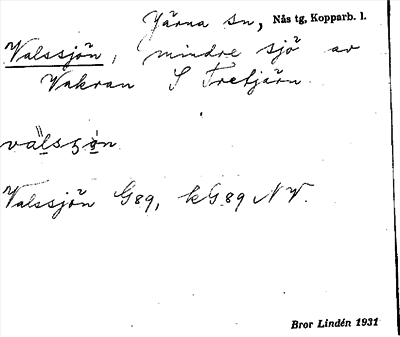 Järna sn, Nås tg, Kopparb. l.
Valssjön, mindre sjö av
Vakran S Tretjärn.
Valssjön G89, kG89 NV.
Bror Lindén 1931